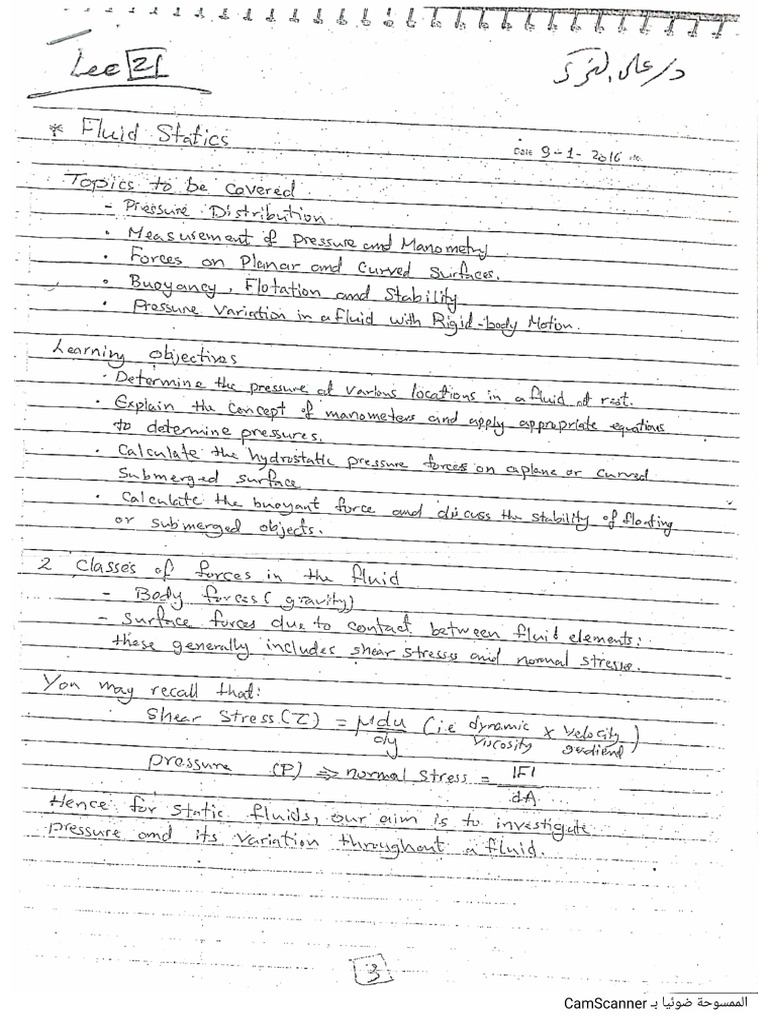 Lec 2
د/ على
* Fluid Statics
Date 9-1-2016
Topics to be covered
- Pressure Distribution
• Measurement of pressure and Manometry
• Forces on Planar and Curved Surfaces.
• Buoyancy, Flotation and Stability
• Pressure Variation in a fluid with Rigid-body Motion.
Learning objectives
• Determine the pressure at various locations in a fluid at rest.
• Explain the concept of manometers and apply appropriate equations
to determine pressures.
• Calculate the hydrostatic pressure forces on a plane or curved
Submerged surface
• Calculate the buoyant force and discuss the stability of floating
or submerged objects.
2 Classes of forces in the fluid
- Body forces (gravity)
- Surface forces due to contact between fluid elements:
these generally includes shear stresses and normal stresses.
You may recall that:
Shear Stress (τ) = μ du/dy (i.e dynamic viscosity x velocity gradient)
pressure (P) ⇒ normal stress = |F|/dA
Hence for static fluids, our aim is to investigate
pressure and its variation throughout a fluid.
3
الممسوحة ضوئيا بـ CamScanner